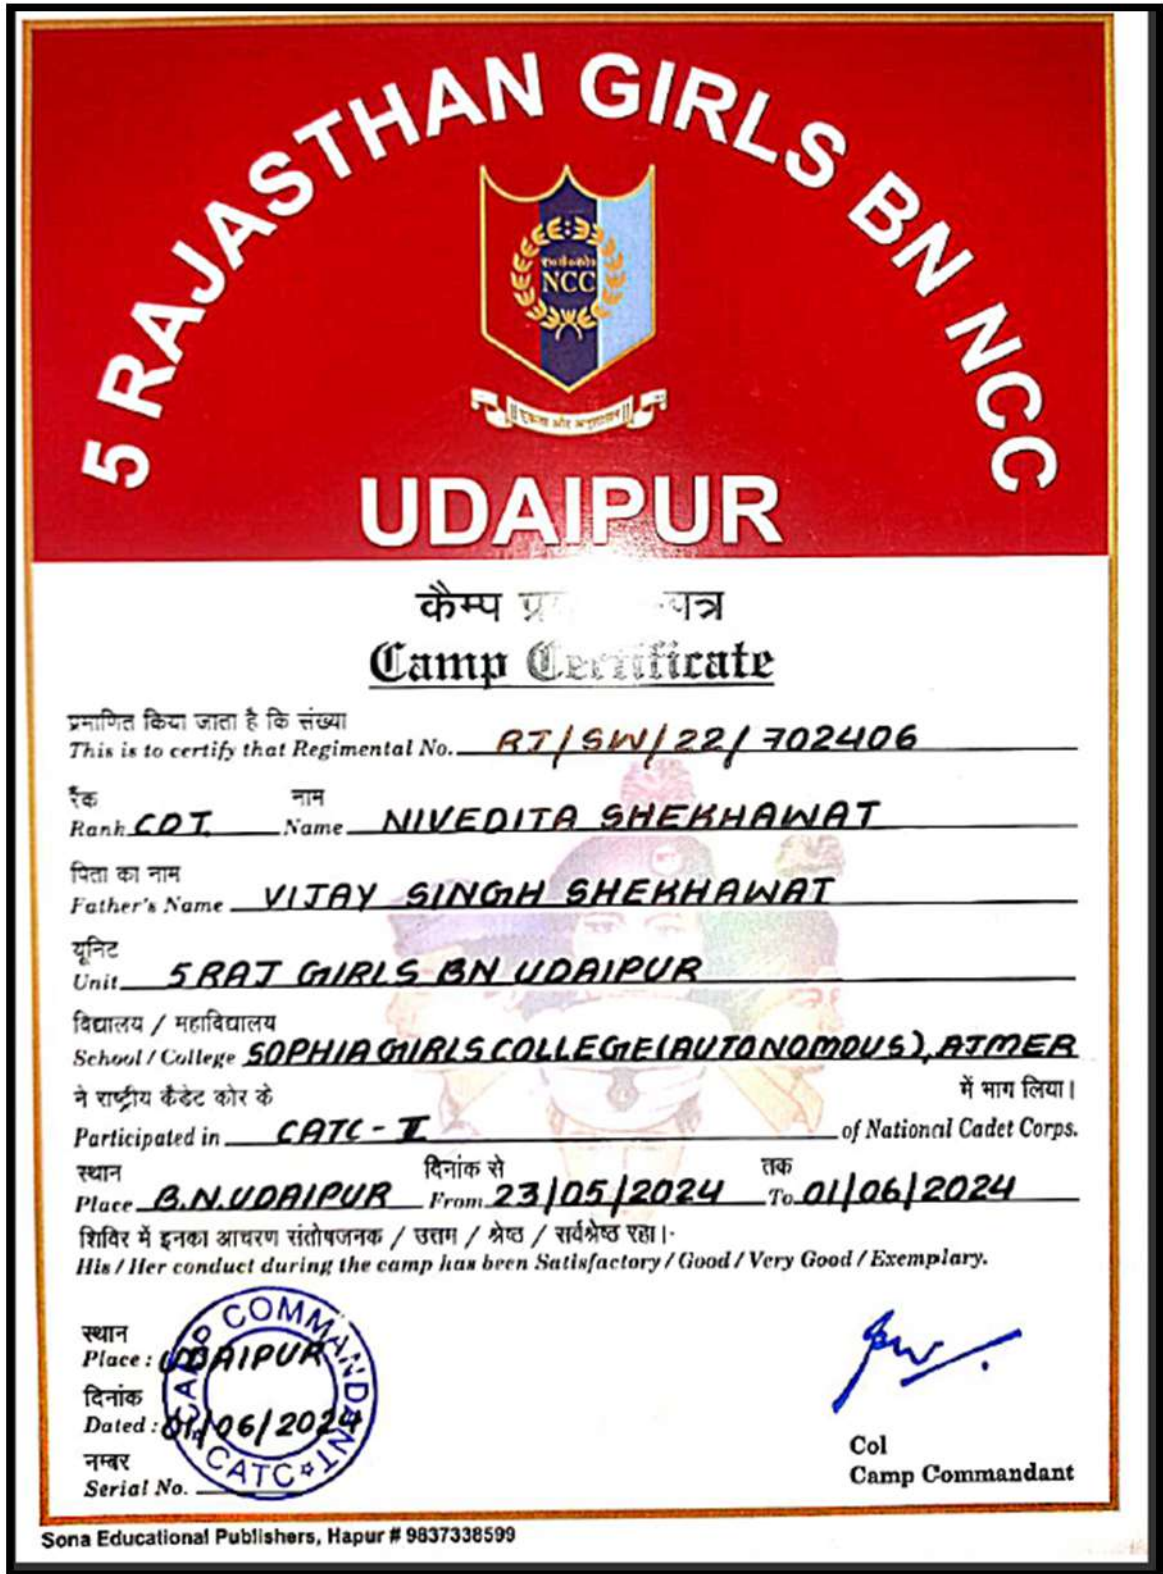 5 RAJASTHAN GIRLS BN NCC
NCC
एकता और अनुशासन
UDAIPUR
कैम्प
Camp Certificate
प्रमाणित किया जाता है कि संख्या
This is to certify that Regimental No. RJ/SW/22/702406
रैंक नाम
Rank CDT. Name NIVEDITA SHEKHAWAT
पिता का नाम
Father's Name VIJAY SINGH SHEKHAWAT
यूनिट
Unit 5 RAJ GIRLS BN UDAIPUR
विद्यालय / महाविद्यालय
School / College SOPHIA GIRLS COLLEGE (AUTONOMOUS), AJMER
ने राष्ट्रीय कैडेट कोर के में भाग लिया।
Participated in CATC - II of National Cadet Corps.
स्थान दिनांक से तक
Place B.N. UDAIPUR From 23/05/2024 To 01/06/2024
शिविर में इनका आचरण संतोषजनक / उत्तम / श्रेष्ठ / सर्वश्रेष्ठ रहा।
His / Her conduct during the camp has been Satisfactory / Good / Very Good / Exemplary.
स्थान
Place : UDAIPUR
दिनांक
Dated : 01/06/2024
नम्बर
Serial No.
CAMP COMMANDANT
CATC
Col
Camp Commandant
Sona Educational Publishers, Hapur # 9837338599